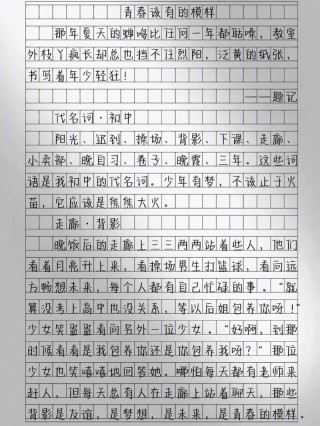 青春该有的模样
那年夏天的蝉鸣比任何一年都聒噪，教室
外枝丫疯长却总也挡不住烈阳，泛黄的纸张，
书写着年少轻狂！
——题记
代名词·初中
阳光、迟到、操场、背影、下课、走廊、
小卖部、晚自习、卷子、晚霞、三年。这些词
语是我初中的代名词。少年有梦，不该止于火
苗，它应该是熊熊大火。
走廊·背影
晚饭后的走廊上三三两两站着些人，他们
看着月亮升上来，看操场男生打篮球，看向远
方畅想未来，每个人都有自己忙碌的事。“就
算没考上高中也没关系，等以后姐包养你呀！”
少女笑盈盈看向另外一位少女。“好啊，到那
时候看看是我包养你还是你包养我呀？”那位
少女也笑嘻嘻地回答她。哪怕每天都有老师来
赶人，但每天总有人在走廊上站着聊天，那些
背影是友谊，是梦想，是未来，是青春的模样。